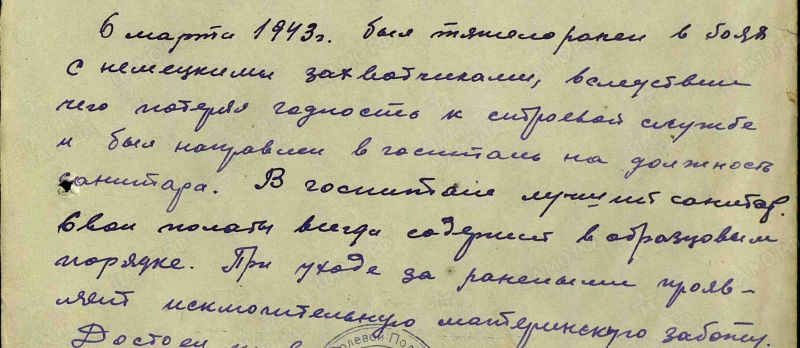 6 марта 1943г. был тяжело ранен в боях
с немецкими захватчиками, вследствии
чего потерял годность к строевой службе
и был направлен в госпиталь на должность
санитара. В госпитале лучший санитар.
Свои палаты всегда содержит в образцовым
порядке. При уходе за ранеными прояв-
ляет исключительную материнскую заботу.
Достоен
Полевой По